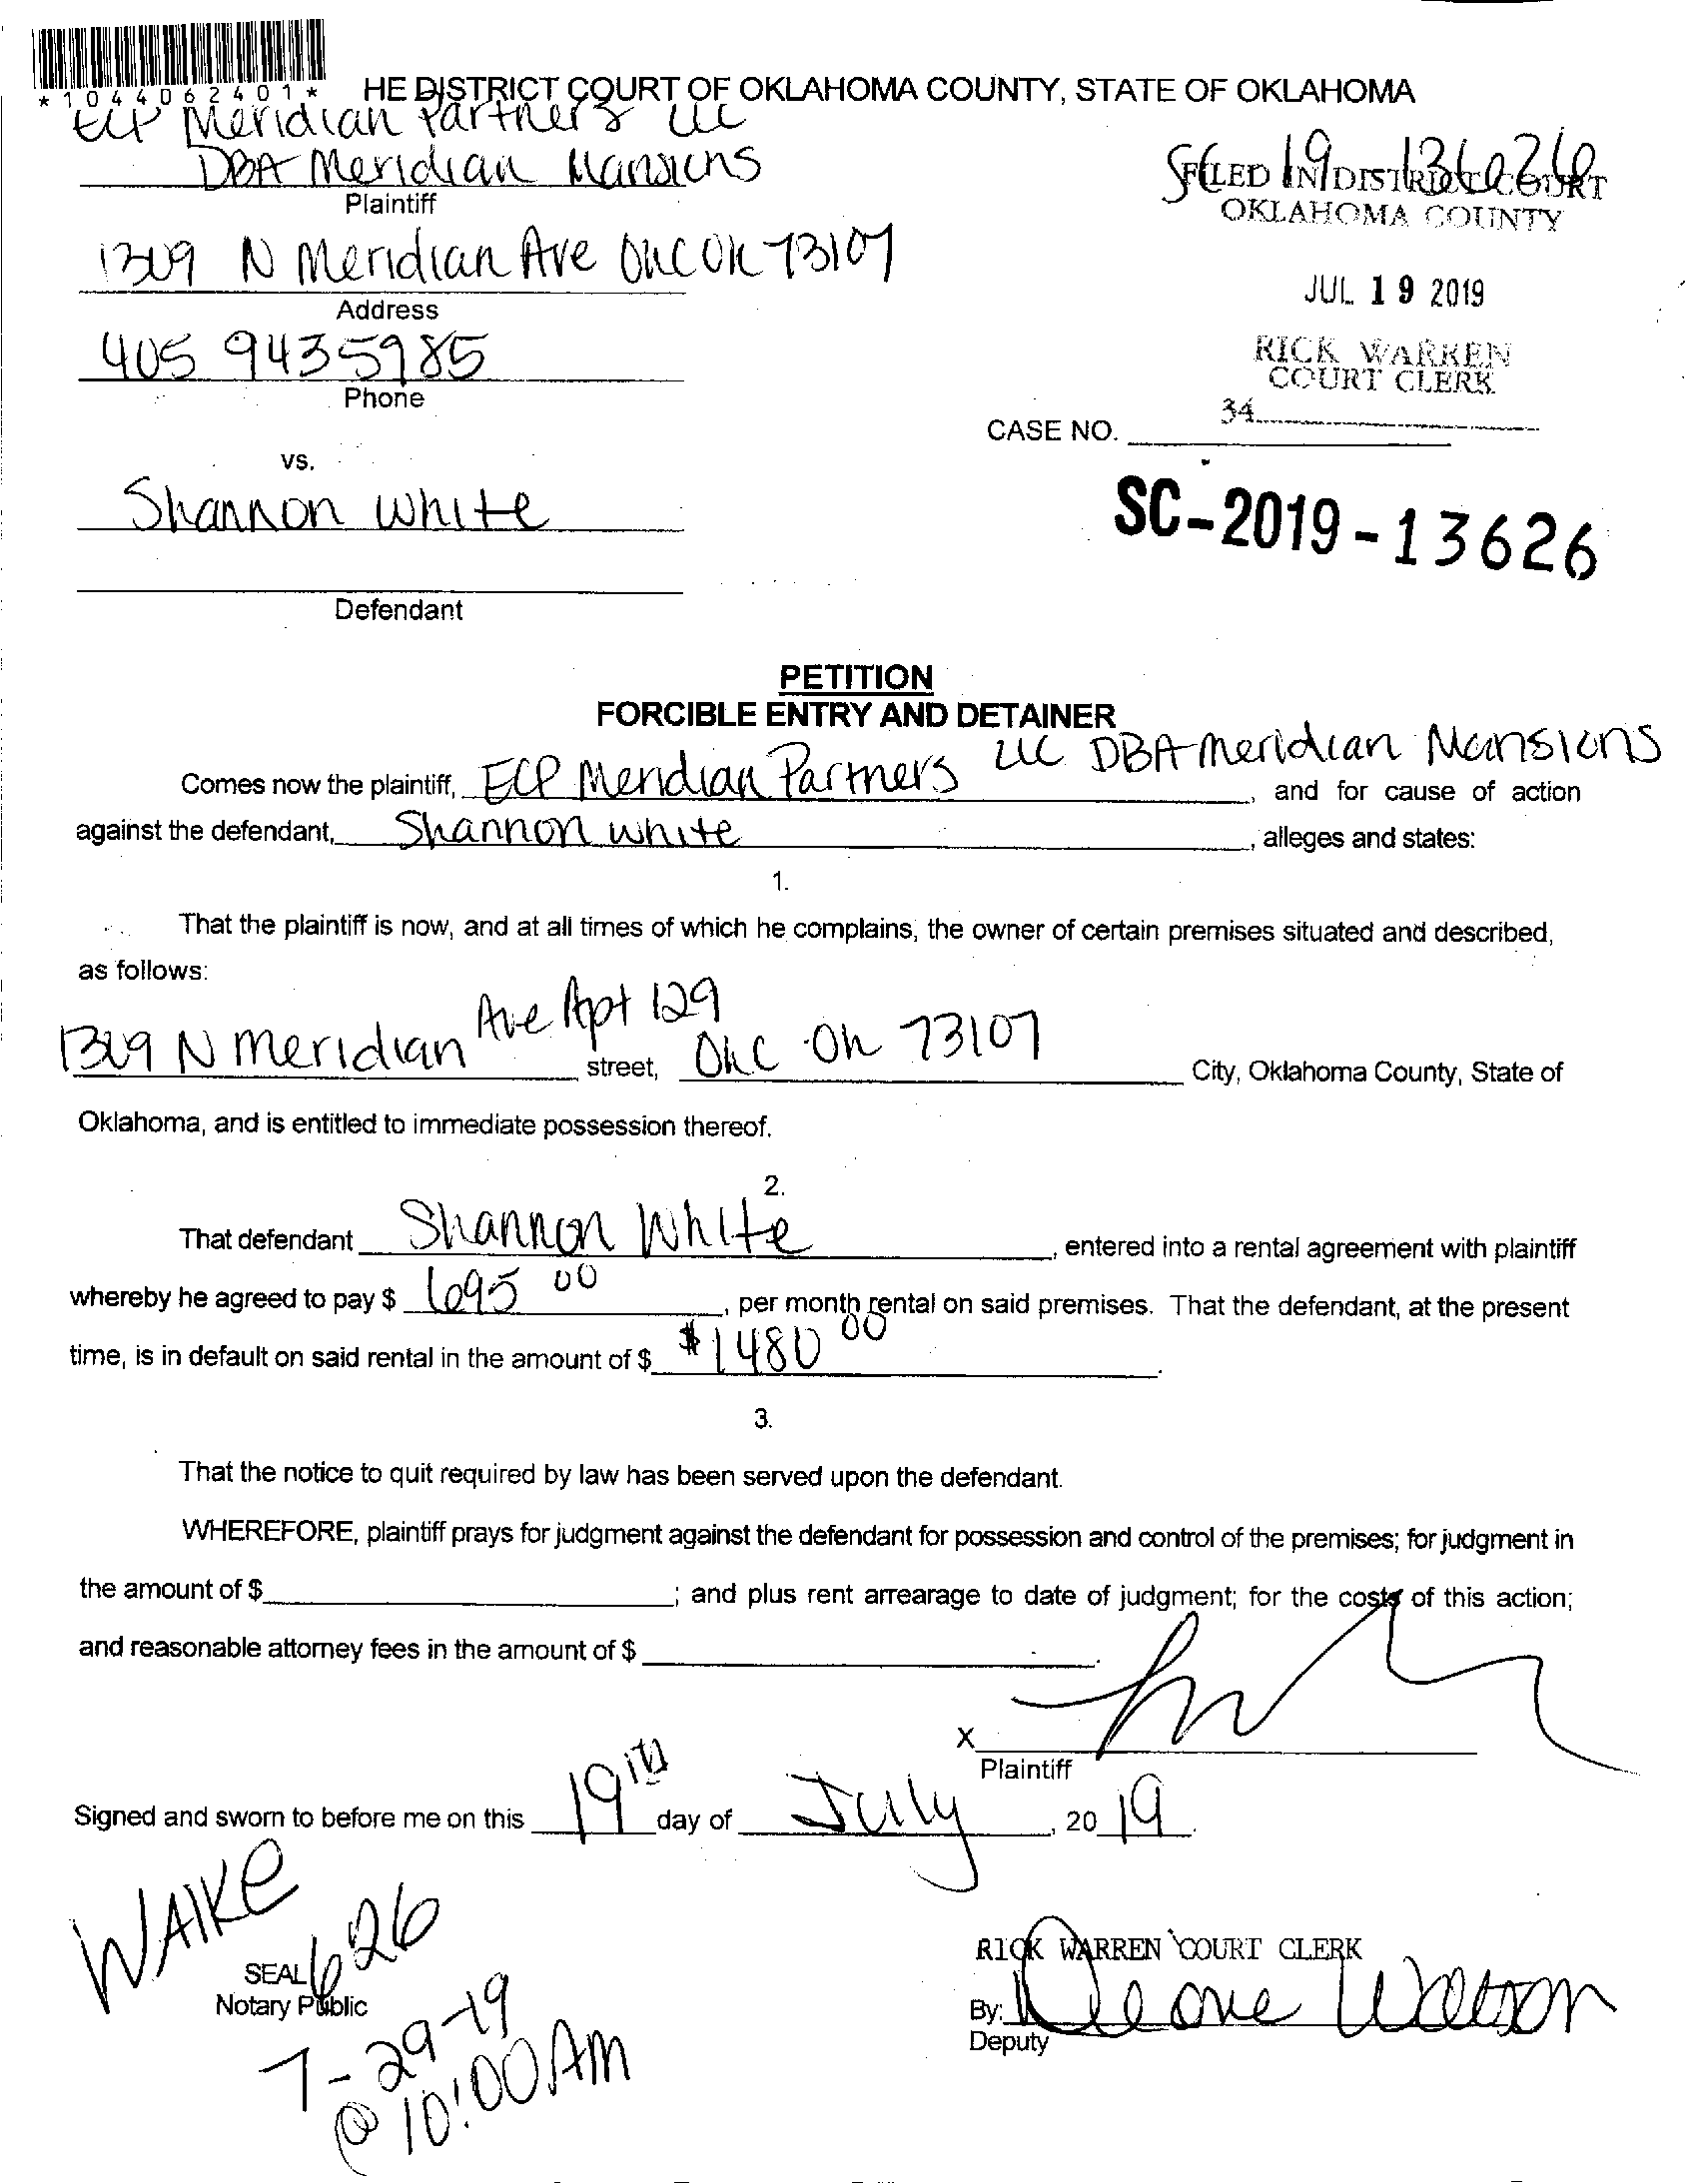 *1044062401*
HE DISTRICT COURT OF OKLAHOMA COUNTY, STATE OF OKLAHOMA
ECP Meridian Partners LLC
DBA Meridian Mansions
Plaintiff
SC 19 13626
FILED IN DISTRICT COURT
OKLAHOMA COUNTY
1319 N Meridian Ave OKC OK 73107
Address
JUL 19 2019
405 9435985
Phone
RICK WARREN
COURT CLERK
34
CASE NO.
vs.
Shannon White
SC-2019-13626
Defendant
PETITION
FORCIBLE ENTRY AND DETAINER
Comes now the plaintiff, ECP Meridian Partners LLC DBA Meridian Mansions, and for cause of action
against the defendant, Shannon White, alleges and states:
1.
That the plaintiff is now, and at all times of which he complains, the owner of certain premises situated and described,
as follows:
1319 N Meridian Ave Apt 129 street, OKC OK 73107 City, Oklahoma County, State of
Oklahoma, and is entitled to immediate possession thereof.
2.
That defendant Shannon White, entered into a rental agreement with plaintiff
whereby he agreed to pay $ 695 00, per month rental on said premises. That the defendant, at the present
time, is in default on said rental in the amount of $ $1480 00.
3.
That the notice to quit required by law has been served upon the defendant.
WHEREFORE, plaintiff prays for judgment against the defendant for possession and control of the premises; for judgment in
the amount of $ ; and plus rent arrearage to date of judgment; for the costs of this action;
and reasonable attorney fees in the amount of $ .
X
Plaintiff
Signed and sworn to before me on this 19th day of July, 2019.
WAIKE
626
SEAL
Notary Public
7-29-19
@ 10:00 AM
RICK WARREN COURT CLERK
By:
Deputy